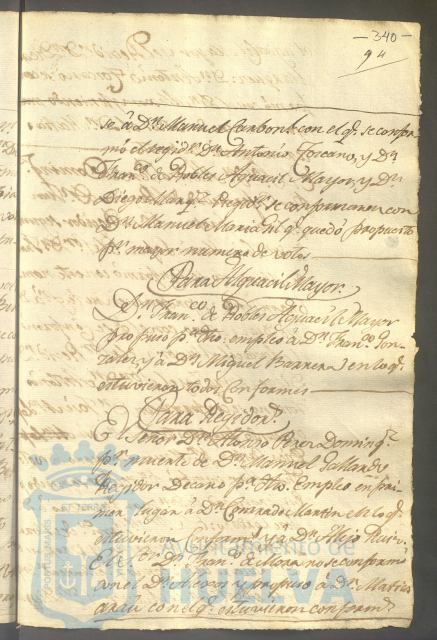 -340-
94
se á Dn. Manuel Carbonl. con el q. se confor
mó el regidr. Dn. Antonio Toscano, y Dn.
Franco. de Robles Aguacil Mayor, y Dn.
Diego Marqz. Regidr. se conformaron con
Dn. Manuel Maria qe. quedó propuesto
pr. mayor numero de votos
Para Alguacil Mayor.
Dn. Franco. de Robles Alguacil Mayor
propuso pa. dho. empleo á Dn. Franco. Gon
zalez y á Dn. Miguel Barrera en lo q.
estuvieron todos conformes
Para Regidor.
El Señor Dn. Alonso Perez Domingz.
pr. muerte de Dn. Manuel Gallardo
Regidor Decano pa. dho. Empleo en pri
mer lugar á Dn. Conrado Martin en lo q.
estuvieron conformes y á Dn. Alejo Ruiz
El Sr. Dn. Franco. de Mora no se conformó
con el Dn. Alejo y propuso á Dn. Matias
con el q. estuvieron conforms.
Ayuntamiento de
HUELVA